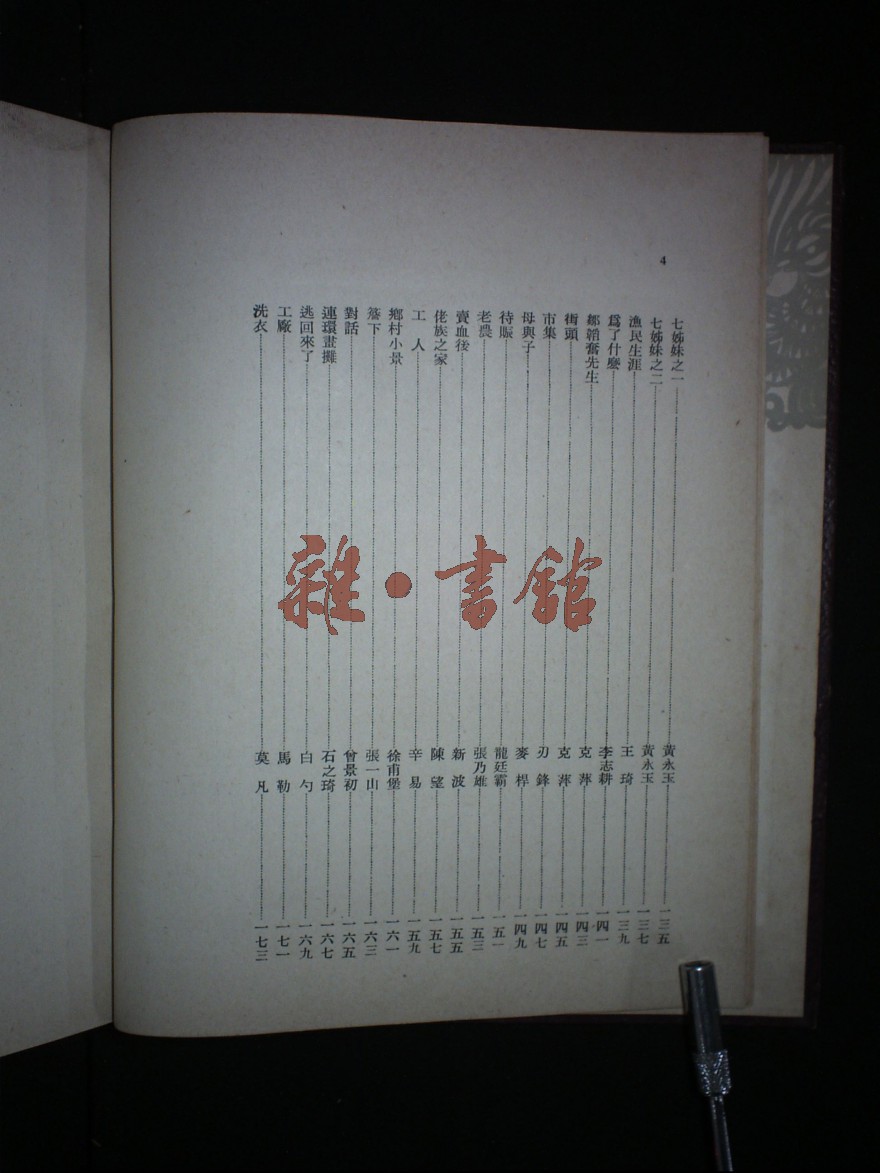 4
七姊妹之一 黃永玉 一三五
七姊妹之二 黃永玉 一三七
漁民生涯 王琦 一三九
爲了什麽 李志耕 一四一
鄒韜奮先生 克萍 一四三
街頭 克萍 一四五
市集 刃鋒 一四七
母與子 麥桿 一四九
待賑 龍廷霸 一五一
老農 張乃雄 一五三
賣血後 新波 一五五
佬族之家 陳望 一五七
工人 辛易 一五九
鄉村小景 徐甫堡 一六一
簷下 張一山 一六三
對話 曾景初 一六五
連環畫攤 石之琦 一六七
逃回來了 白勺 一六九
工廠 馬勒 一七一
洗衣 莫凡 一七三
雜·書館